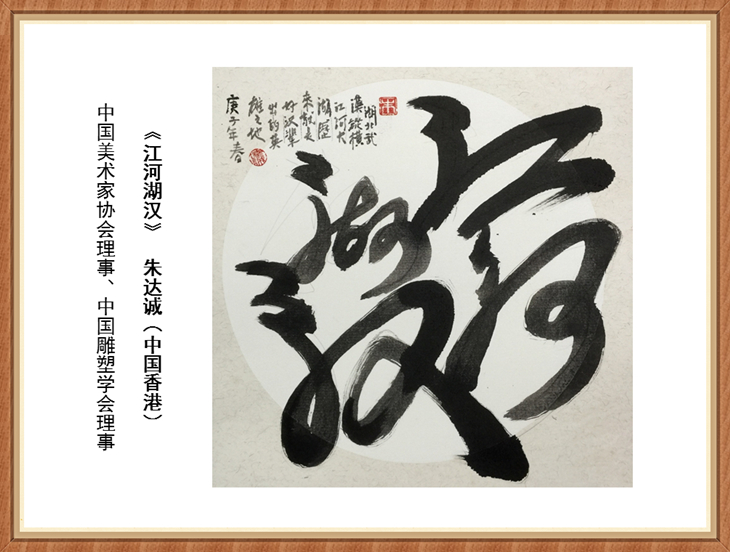 江河
湖汉
湖北武
漢縱橫
江河大
湖歷
来就是
好汉輩
出的英
雄之地
庚子年春
《江河湖汉》 朱达诚（中国香港）
中国美术家协会理事、中国雕塑学会理事